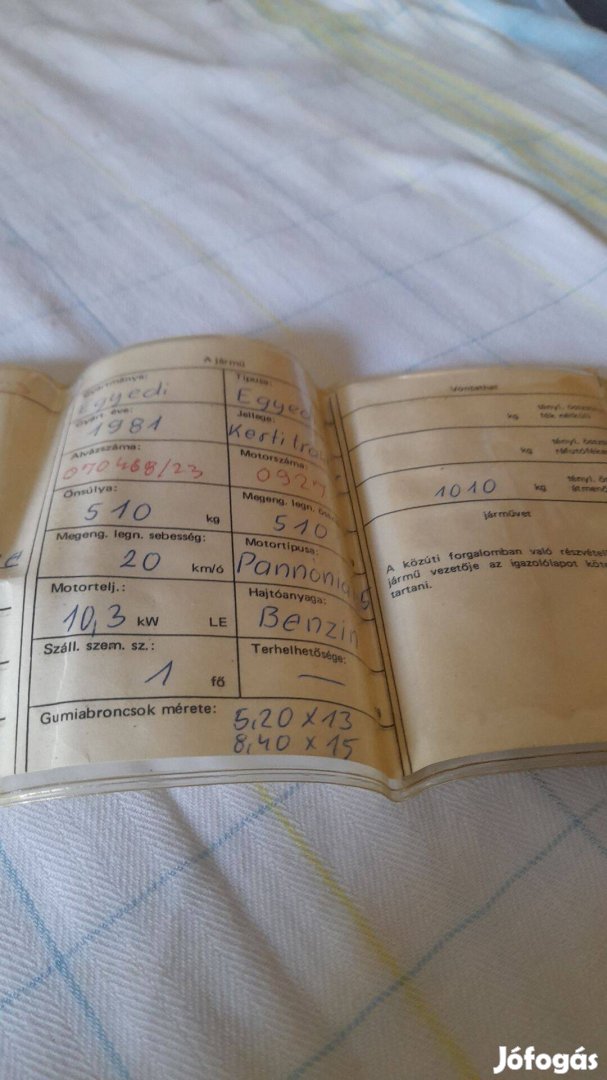 A jármű
Gyártmánya:
Egyedi
Típusa:
Gyárt. éve:
1981
Jellege:
Alvázszáma:
070468/23
Motorszáma:
Önsúlya:
510 kg
Megeng. legn.
510
Megeng. legn. sebesség:
20 km/ó
Motortípusa:
Pannónia
Motortelj.:
10,3 kW LE
Hajtóanyaga:
Benzin
Száll. szem. sz.:
1 fő
Terhelhetősége:
—
Gumiabroncsok mérete: 5,20 x 13
8,40 x 15
Vontathat
kg
kg
1010 kg
járművet
A közúti forgalomban való
jármű vezetője az igazolólapot
tartani.
Jófogás